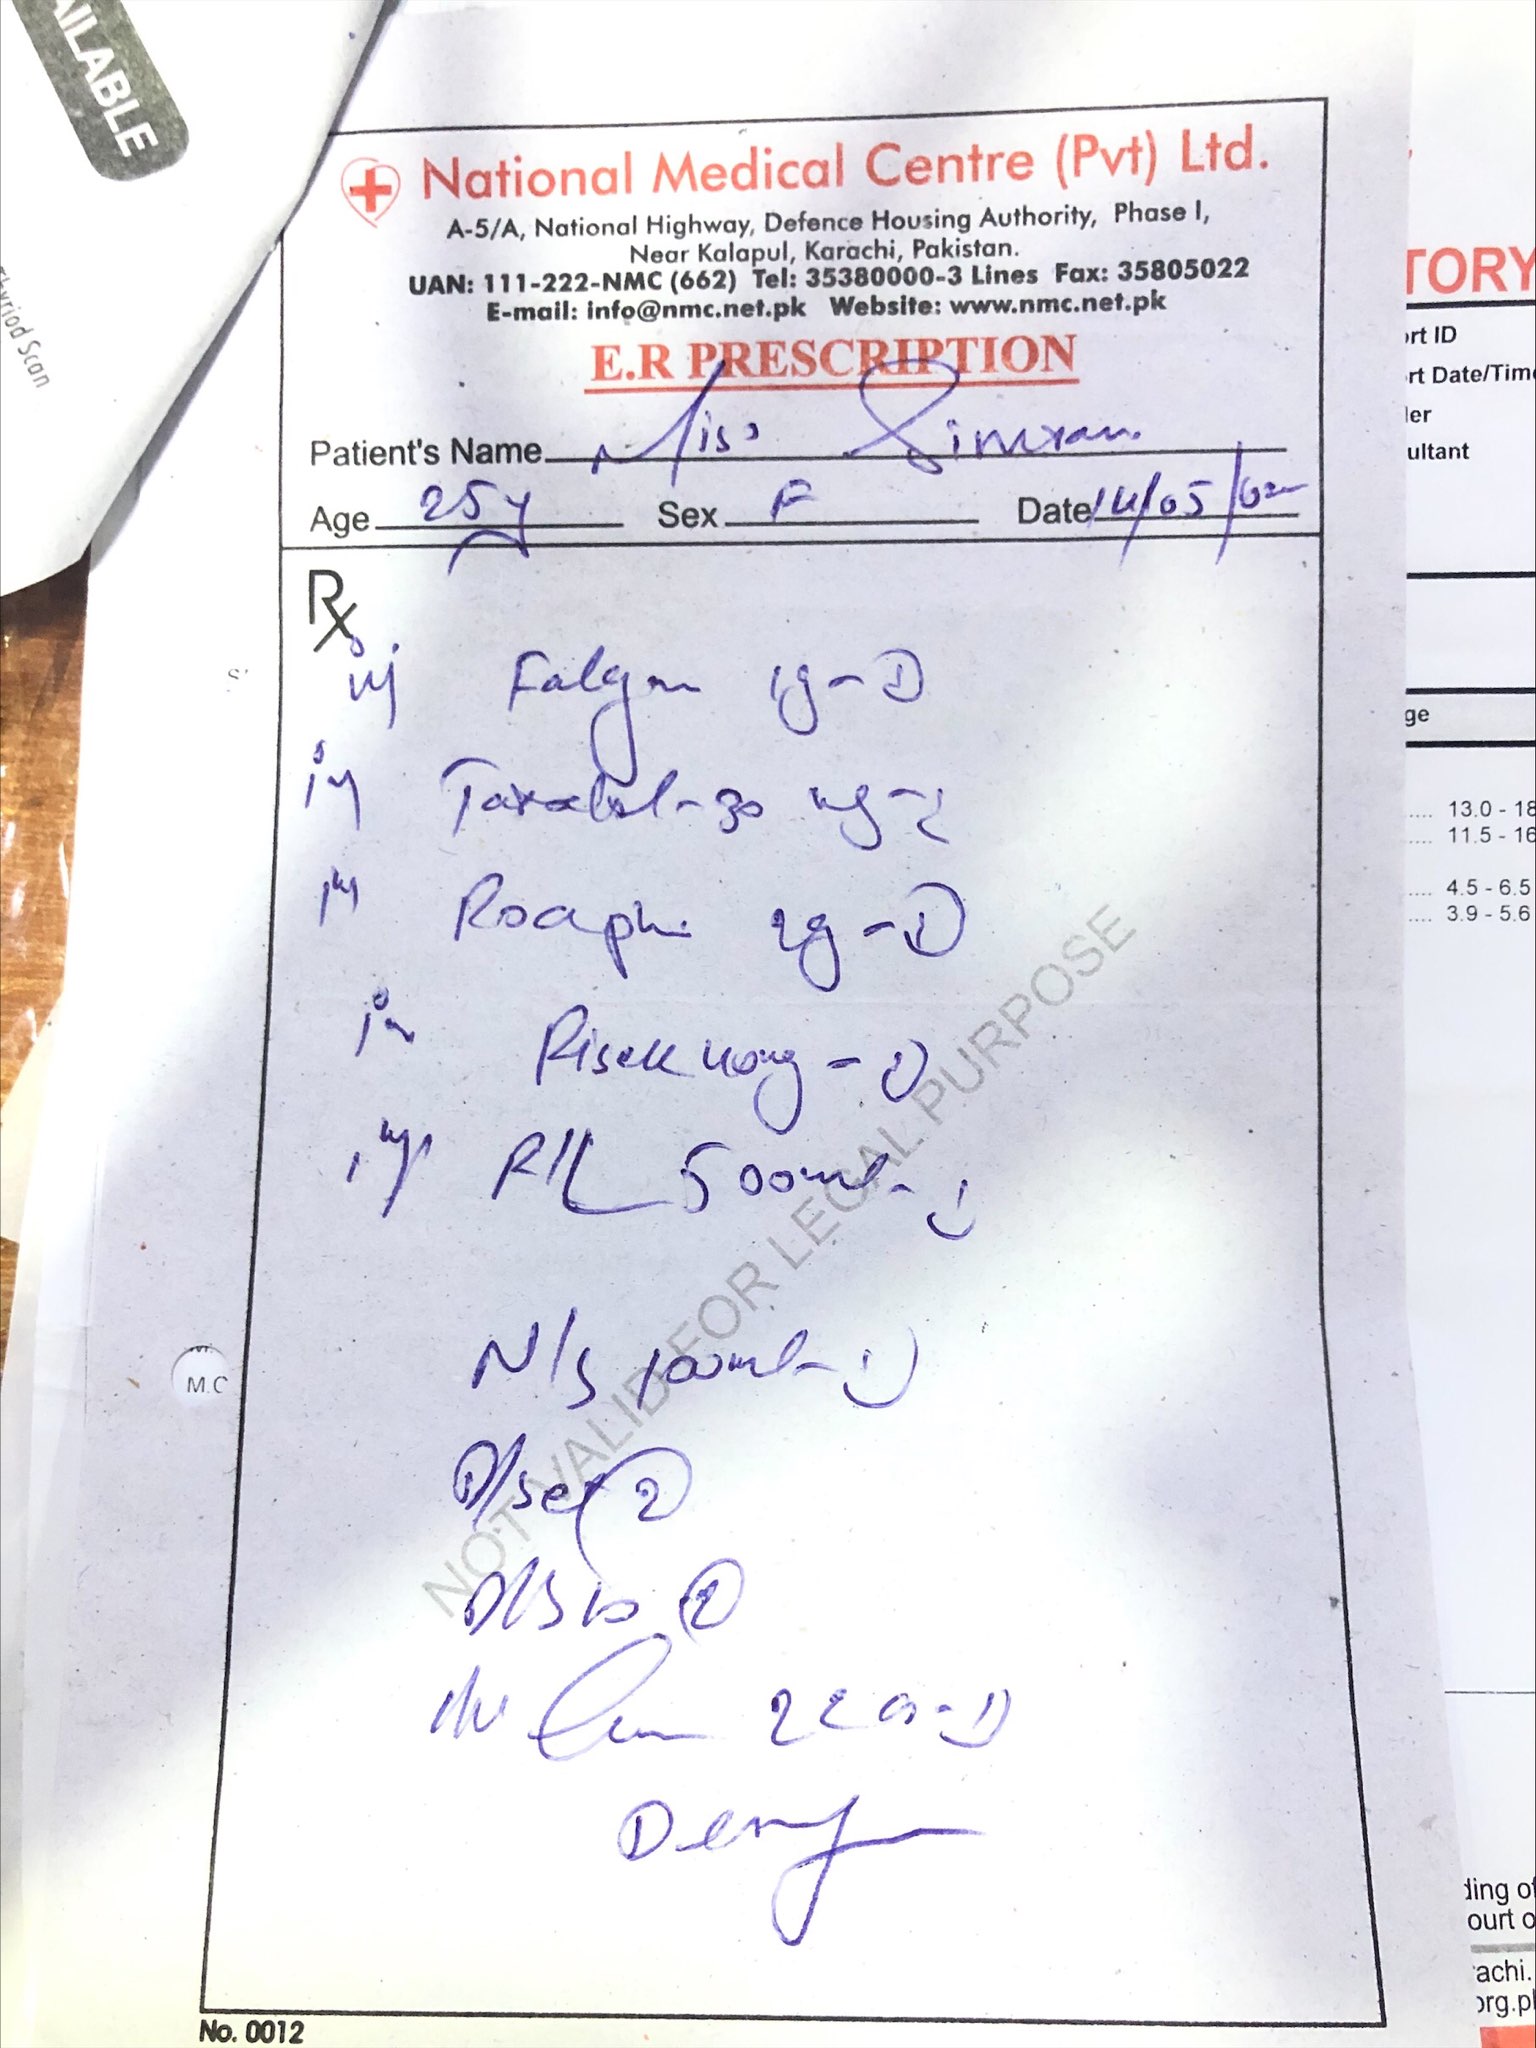 AILABLE
Thyriod Scan
National Medical Centre (Pvt) Ltd.
A-5/A, National Highway, Defence Housing Authority, Phase I,
Near Kalapul, Karachi, Pakistan.
UAN: 111-222-NMC (662) Tel: 35380000-3 Lines Fax: 35805022
E-mail: info@nmc.net.pk Website: www.nmc.net.pk
E.R PRESCRIPTION
Patient's Name Miss Simran
Age 25y Sex F Date 14/05/02
Rx
inj Falgan 1g - 1
inj 30 mg -
inj 2g - 1
inj Risek 40mg - 1
inj R/L 500ml - 1
N/S 100ml - 1
D/set 2
D/S 10 2
22 G - 1
NOT VALID FOR LEGAL PURPOSE
M.C
No. 0012
TORY
ort ID
ort Date/Time
ultant
ge
13.0 - 18
11.5 - 16
4.5 - 6.5
3.9 - 5.6
ding of
ourt o
achi.
org.p